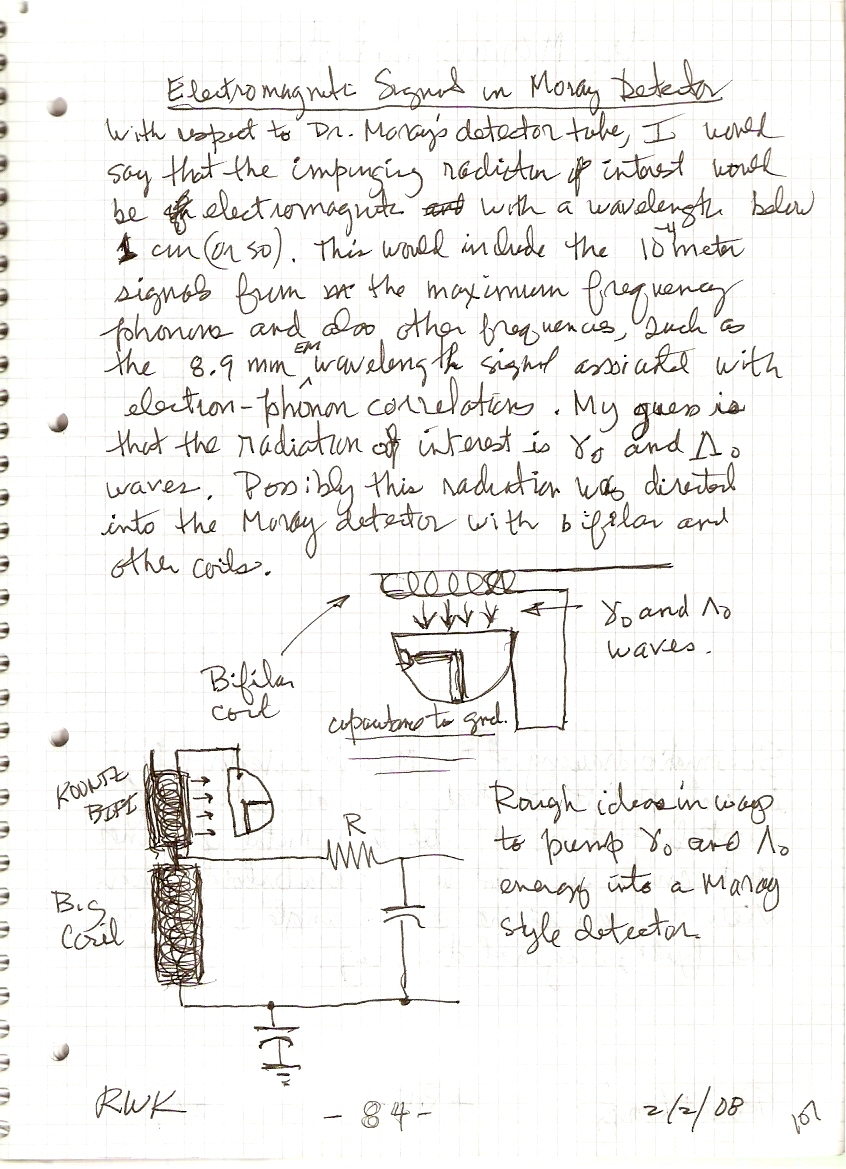 Electromagnetic Signal in Moray Detector
With respect to Dr. Moray's detector tube, I would
say that the impinging radiation of interest would
be electromagnetic and with a wavelength below
1 cm (or so). This would include the 10⁻⁴ meter
signals from the maximum frequency
phonons and also other frequencies, such as
the 8.9 mm EM wavelength signal associated with
electron-phonon correlations. My guess is
that the radiation of interest is γ₀ and Λ₀
waves. Possibly this radiation was directed
into the Moray detector with bifilar and
other coils.
γ₀ and Λ₀
waves.
Bifilar
coil
capacitance to gnd.
KOONTZ
BIFI
R
Big
Coil
Rough ideas in ways
to pump γ₀ and Λ₀
energy into a Moray
style detector.
RWK
- 84 -
2/2/08
101